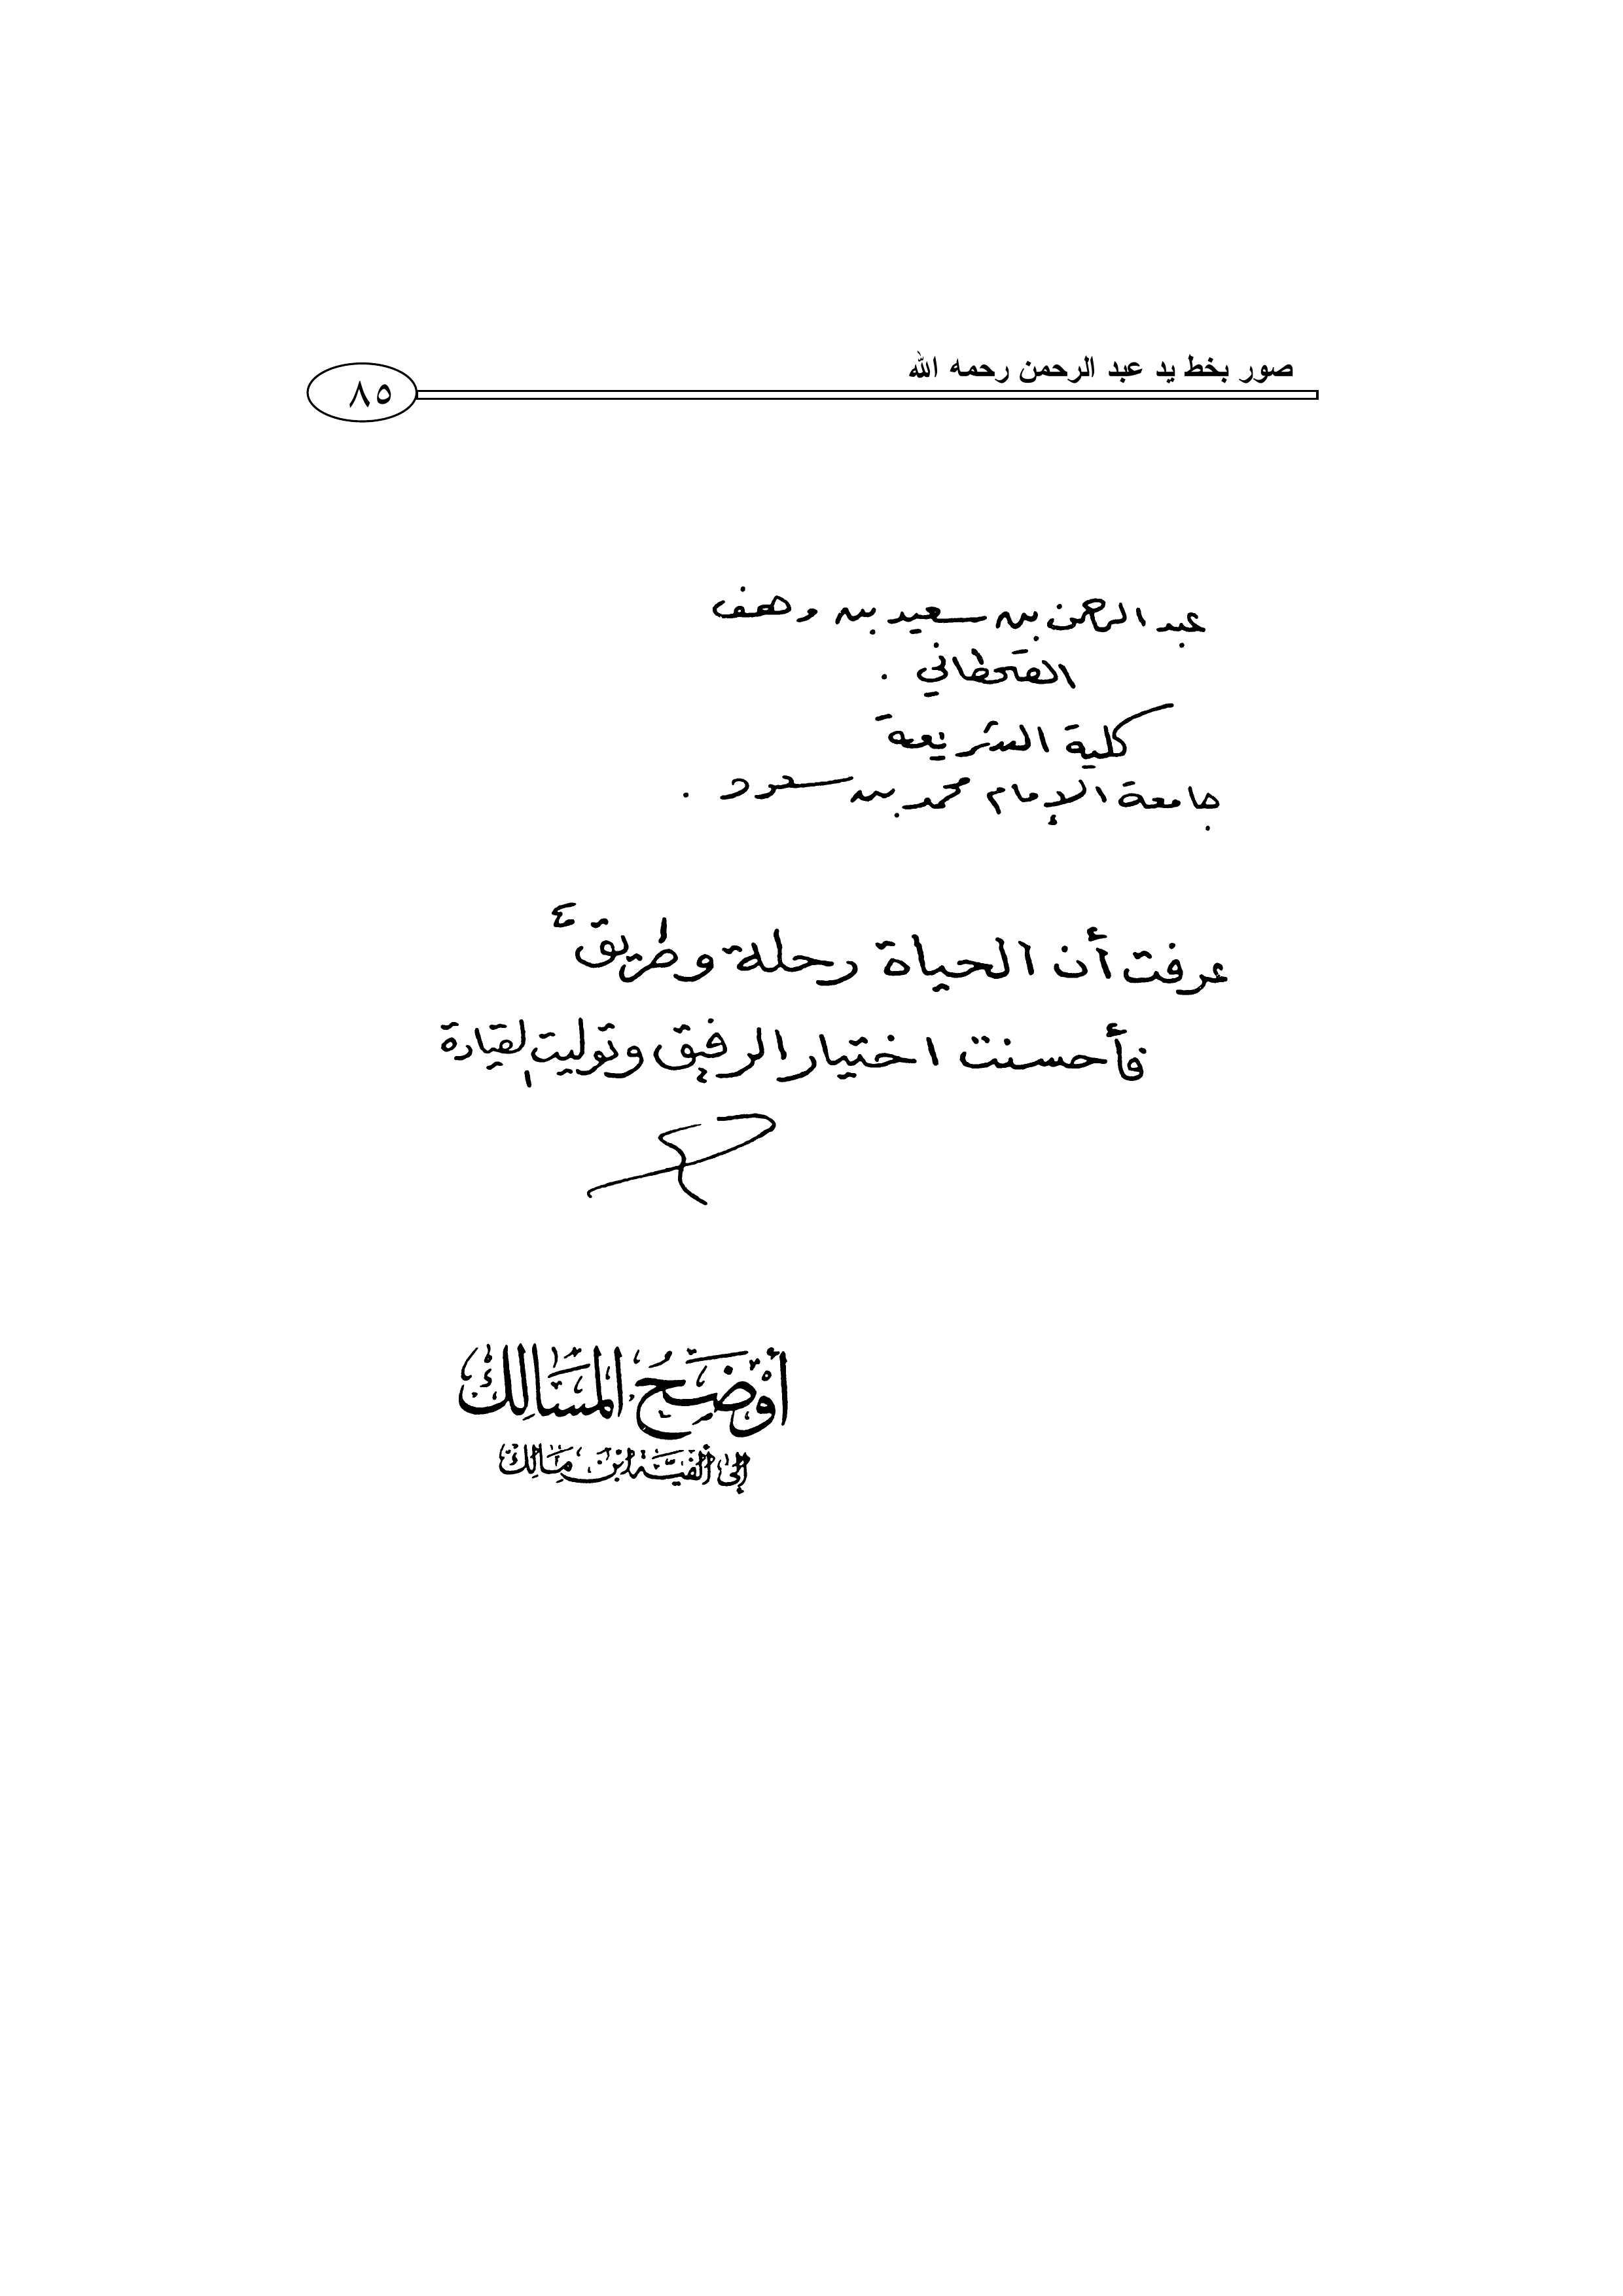 صور بخط يد عبد الرحمن رحمه الله
٨٥
عبد الرحمن بن سعيد بن وهف
القحطاني .
كلية الشريعة
جامعة الإمام محمد بن سعود .
عرفت أن الحياة رحلة وطريق
فأحسنت اختيار الرفيق وتوليت لقيادة
أَوْضَحُ المَسَالِك
إلى ألفية ابن مالك